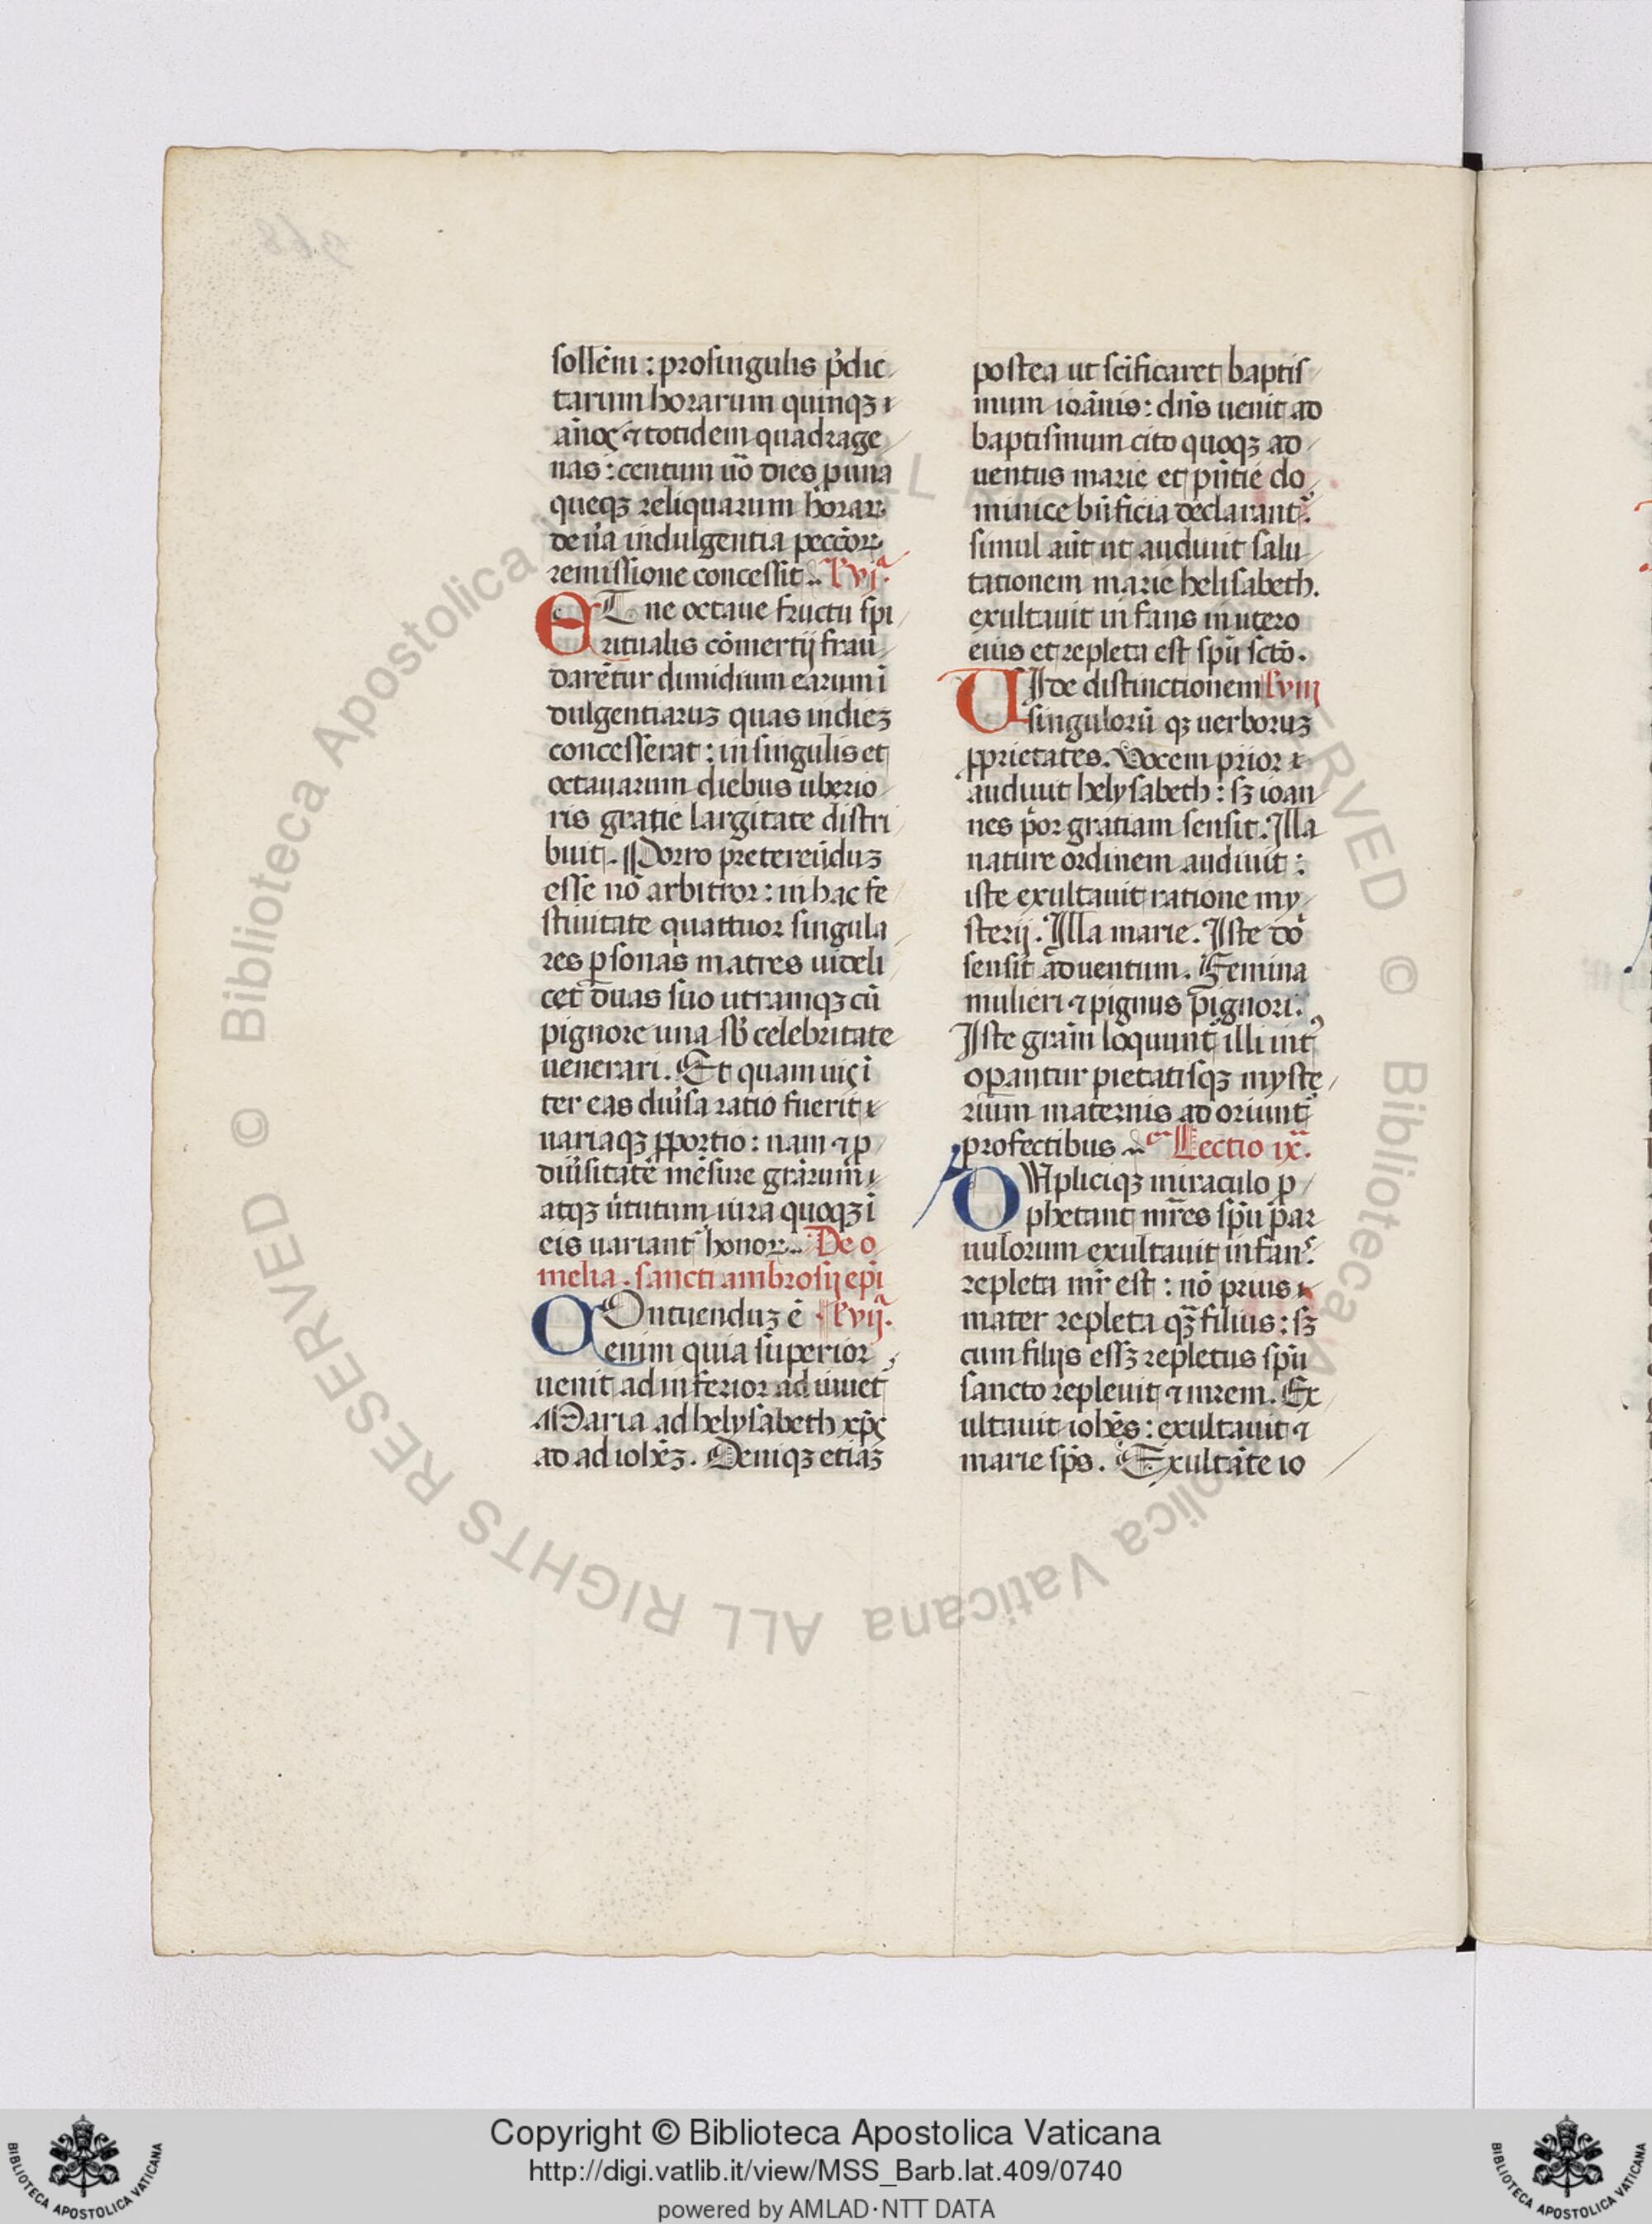 sollēni : prosingulis p̄dic
tarum horarum quinqꝫ
annoꝯ ⁊ totidem quadrage
nas : centum uō dies p una
queqꝫ reliquarum horaꝝ
de ńa indulgentia peccōꝝ
remissione concessit .. l' vjᵃ.
ET ne octaue fructu spi
ritualis cōmertij frau
darētur dimidium earum ī
dulgentiaruꝫ quas in dieꝫ
concesserat : in singulis et
octauarum diebus uberio
ris gratie largitate distri
buit. Porro pretereūduꝫ
esse nō arbitror : in hac fe
stiuitate quattuor singula
res ꝑsonas matres uideli
cet duas suo utramqꝫ cū
pignore una sb̄ celebritate
uenerari. Et quam uiꝯ ī
ter eas diuīsa ratio fuerit
uariaqꝫ ꝓportio : nam ⁊ ꝑ
diuīsitatē mēsure grārum
atqꝫ ūtutum iura quoqꝫ ī
eis uariant' honoꝝ.. De o
melia . sancti ambrosij epī
COntuenduꝫ ē l' vijᵃ.
enim quia superior
uenit ad inferior ad iuuet
Maria ad helysabeth xp̄ꝯ
ad ad iohēꝫ. Deniqꝫ etiaꝫ
postea ut scīficaret baptis
mum ioānis : dn̄s uenit ad
baptismum cito quoqꝫ ad
uentus marie et pn̄tie do
minice bn̄ficia declarant'.
simul aūt ut audiuit salu
tationem marie helisabeth.
exultauit infans in utero
eius et repleta est spū sctō.
UIde distinctionem l' viij
singulorū qꝫ uerboruꝫ
ꝓprietates. Vocem prior
audiuit helysabeth : sꝫ ioan
nes p̄or gratiam sensit. Illa
nature ordinem audiuit :
iste exultauit ratione my
sterij. Illa marie. Iste dō
sensit aduentum. Femina
mulieri ⁊ pignus pignori.
Iste grām loquunt' illi int'
oꝑantur pietatisqꝫ myste
rium maternis ad oriunt'
profectibus .. Lectio ixᵃ.
DUpliciqꝫ miraculo ꝓ
phetant mr̄es spū par
uulorum exultauit infans
repleta mr̄ est : nō prius
mater repleta qꝫ filius : sꝫ
cum filijs essꝫ repletus spū
sancto repleuit ⁊ mrem. Ex
ultauit iohēs : exultauit ⁊
marie sps. Exultāte io
Copyright © Biblioteca Apostolica Vaticana
http://digi.vatlib.it/view/MSS_Barb.lat.409/0740
powered by AMLAD·NTT DATA
© Biblioteca Apostolica Vaticana ALL RIGHTS RESERVED
BIBLIOTECA APOSTOLICA VATICANA
BIBLIOTECA APOSTOLICA VATICANA